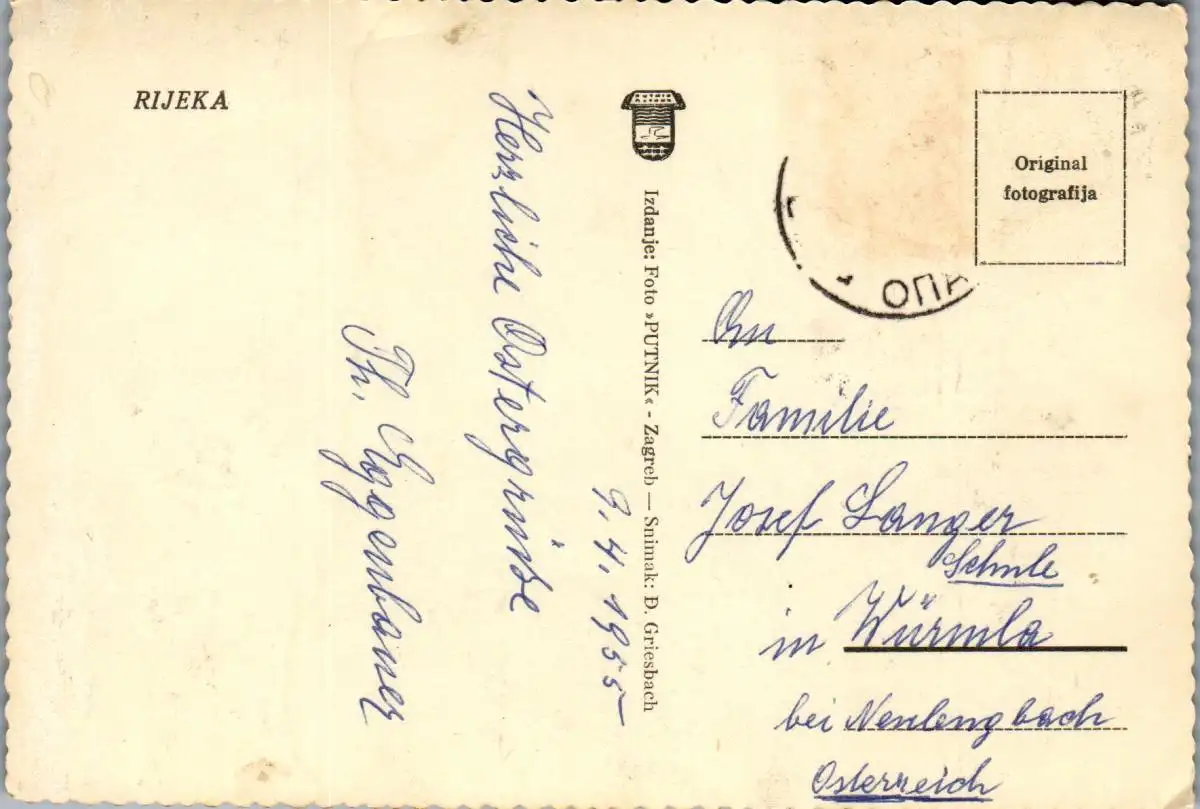 RIJEKA
Herzliche Ostergrüße
Th. Eggenbauer
9.4.1955
Izdanje: Foto »PUTNIK« - Zagreb — Snimak: Đ. Griesbach
Original
fotografija
ОПА
An
Familie
Josef Langer
Schule
in Würmla
bei Neulengbach
Osterreich